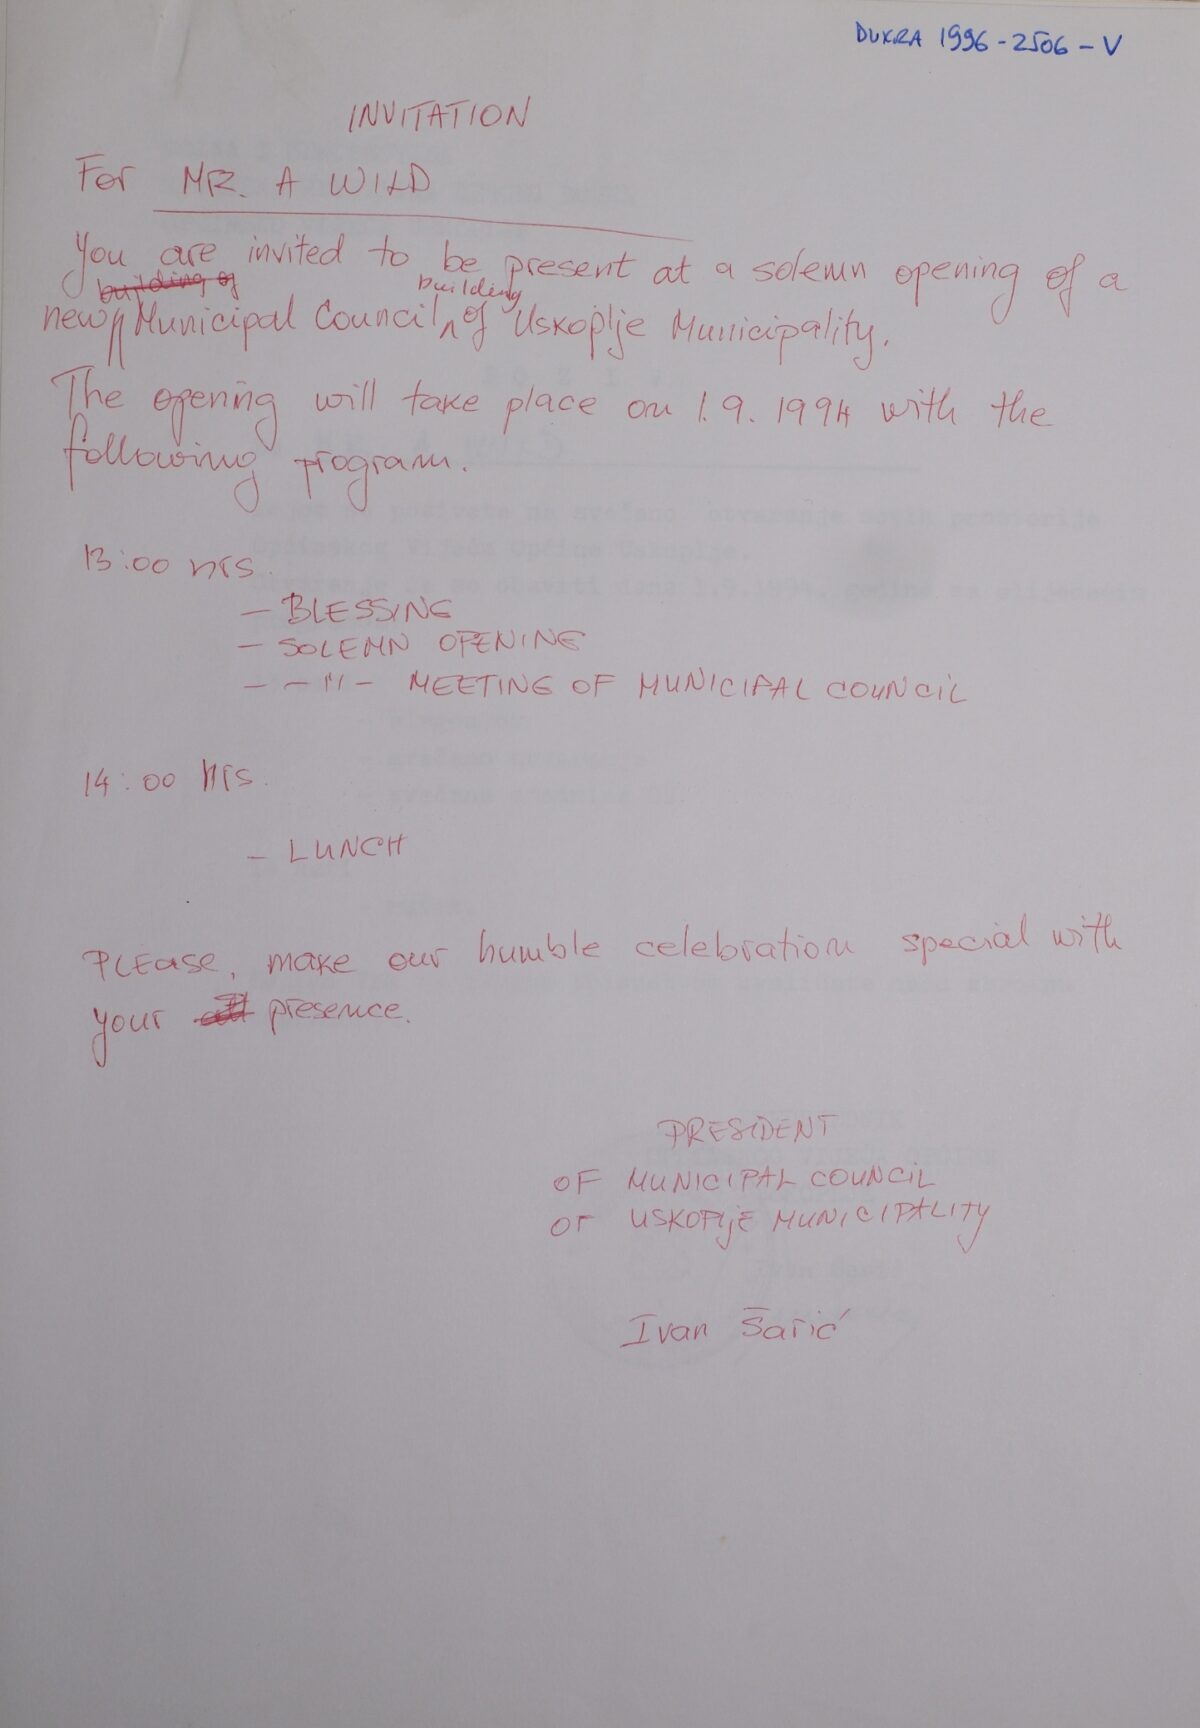 DUKRA 1996-2506-V
INVITATION
For MR. A WILD
You are invited to be present at a solemn opening of a
building of building
new Municipal Council of Uskoplje Municipality.
The opening will take place on 1.9.1994 with the
following program.
13:00 hrs.
- BLESSING
- SOLEMN OPENING
- -"- MEETING OF MUNICIPAL COUNCIL
14:00 hrs.
- LUNCH
PLEASE, make our humble celebration special with
your presence.
PRESIDENT
OF MUNICIPAL COUNCIL
OF USKOPljE MUNICIPALITY
Ivan Šarić